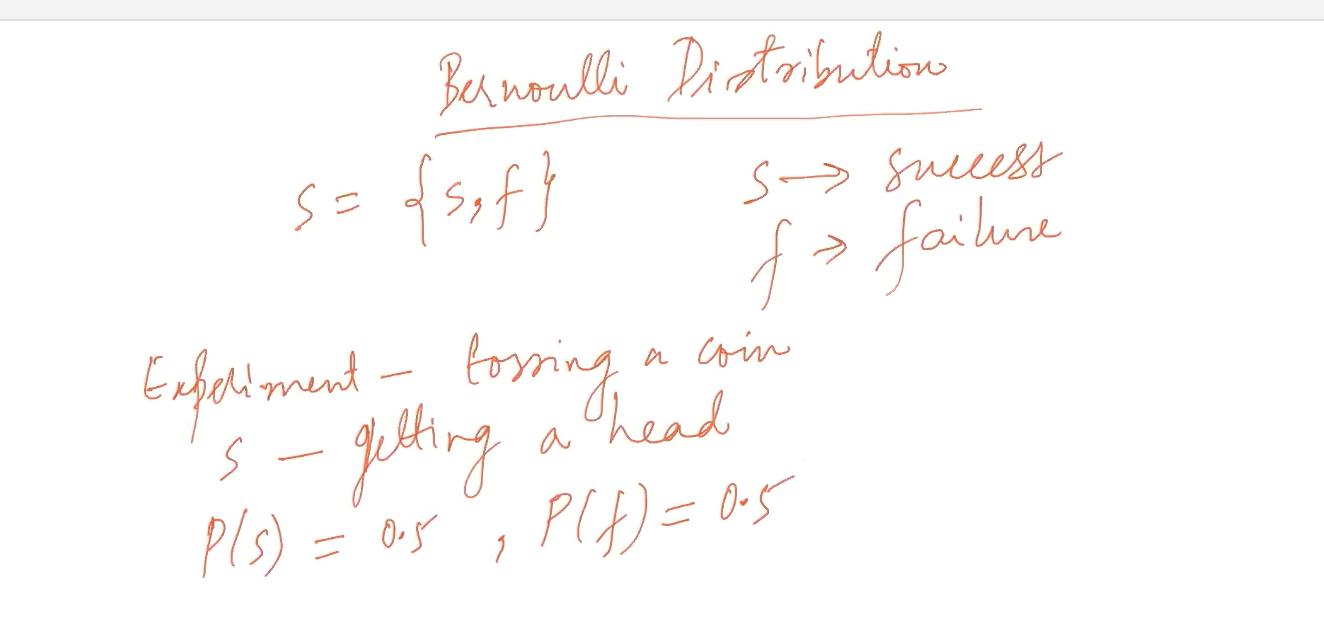 Bernoulli Distribution
S = {s, f} s → success
f → failure
Experiment - tossing a coin
s - getting a head
P(s) = 0.5 , P(f) = 0.5